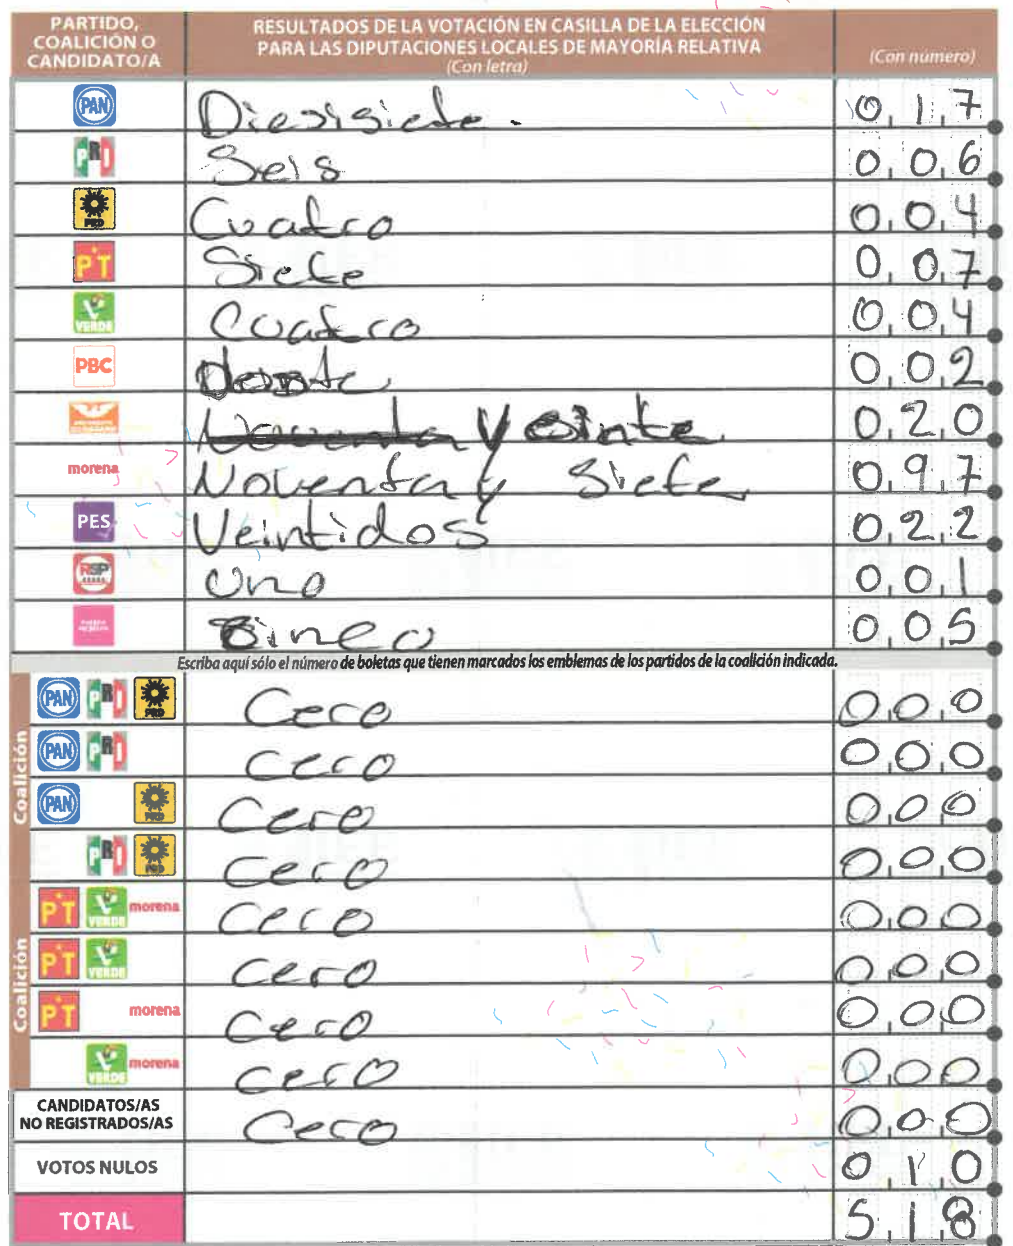 PARTIDO, COALICIÓN O CANDIDATO/A
RESULTADOS DE LA VOTACIÓN EN CASILLA DE LA ELECCIÓN PARA LAS DIPUTACIONES LOCALES DE MAYORÍA RELATIVA
(Con letra)
(Con número)
PAN Diesisiete. 0 1 7
PRI Seis 0 0 6
PRD Cuatro 0 0 4
PT Siete 0 0 7
VERDE Cuatro 0 0 4
PBC 0 0 2
Veinte 0 2 0
morena Noventa y Siete 0 9 7
PES Veintidos 0 2 2
RSP Uno 0 0 1
Cinco 0 0 5
Escriba aquí sólo el número de boletas que tienen marcados los emblemas de los partidos de la coalición indicada.
Coalición
PAN PRI PRD Cero 0 0 0
PAN PRI Cero 0 0 0
PAN PRD Cero 0 0 0
PRI PRD Cero 0 0 0
Coalición
PT VERDE morena Cero 0 0 0
PT VERDE Cero 0 0 0
PT morena Cero 0 0 0
VERDE morena Cero 0 0 0
CANDIDATOS/AS NO REGISTRADOS/AS Cero 0 0 0
VOTOS NULOS 0 1 0
TOTAL 5 1 8